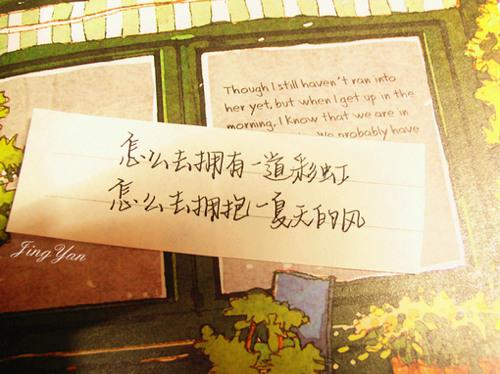 Though I still haven't ran into
her yet, but when I get up in the
morning, I know that we are in
We probably have
怎么去拥有一道彩虹
怎么去拥抱一夏天的风
Jing Yan